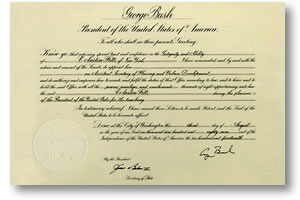 George Bush
President of the United States of America
To all who shall see these presents, Greeting:
Know ye, that reposing special trust and confidence in the Integrity and Ability
of S. Austin Fitts of New York I have nominated, and, by and with the
advice and consent of the Senate, do appoint
an Assistant Secretary of Housing and Urban Development,
and do authorize and empower to execute and fulfil the duties of that Office according to law, and to have and to
hold the said Office, with all the powers, privileges, and emoluments thereunto of right appertaining, unto
the said Austin Fitts, during the pleasure
of the President of the United States for the time being.
In testimony whereof, I have caused these Letters to be made Patent and the Seal of the
United States to be hereunto affixed.
Done at the City of Washington this third day of August
in the year of our Lord one thousand nine hundred and eighty-nine and of the
Independence of the United States of America the two hundred and fourteenth.
G Bush
By the President:
Secretary of State